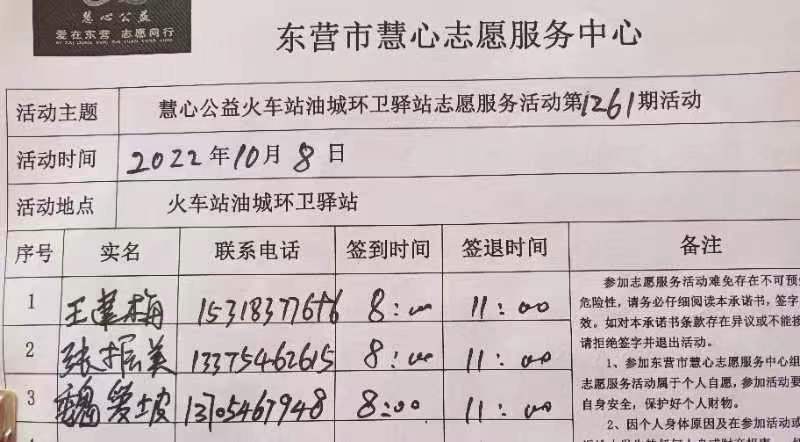 慧心公益
爱在东营 志愿同行
东营市慧心志愿服务中心
活动主题 慧心公益火车站油城环卫驿站志愿服务活动第1261期活动
活动时间 2022年10月8日
活动地点 火车站油城环卫驿站
序号 实名 联系电话 签到时间 签退时间 备注
1 王莲梅 8:00 11:00
2 张振美 13375462615 8:00 11:00
3 魏爱坡 13705467948 8:00 11:00
参加志愿服务活动难免存在不可预
危险性，请务必仔细阅读本承诺书，签字
效。如对本承诺书条款存在异议或不能接
请拒绝签字并退出活动。
1、参加东营市慧心志愿服务中心组
志愿服务活动属于个人自愿，参加活动要
自身安全，保护好个人财物。
2、因个人身体原因及在参加活动或